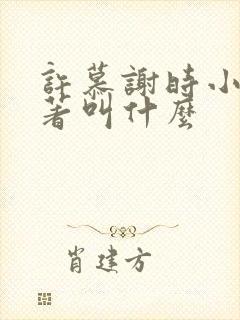 許慕謝時小
著叫什麼
肖建方